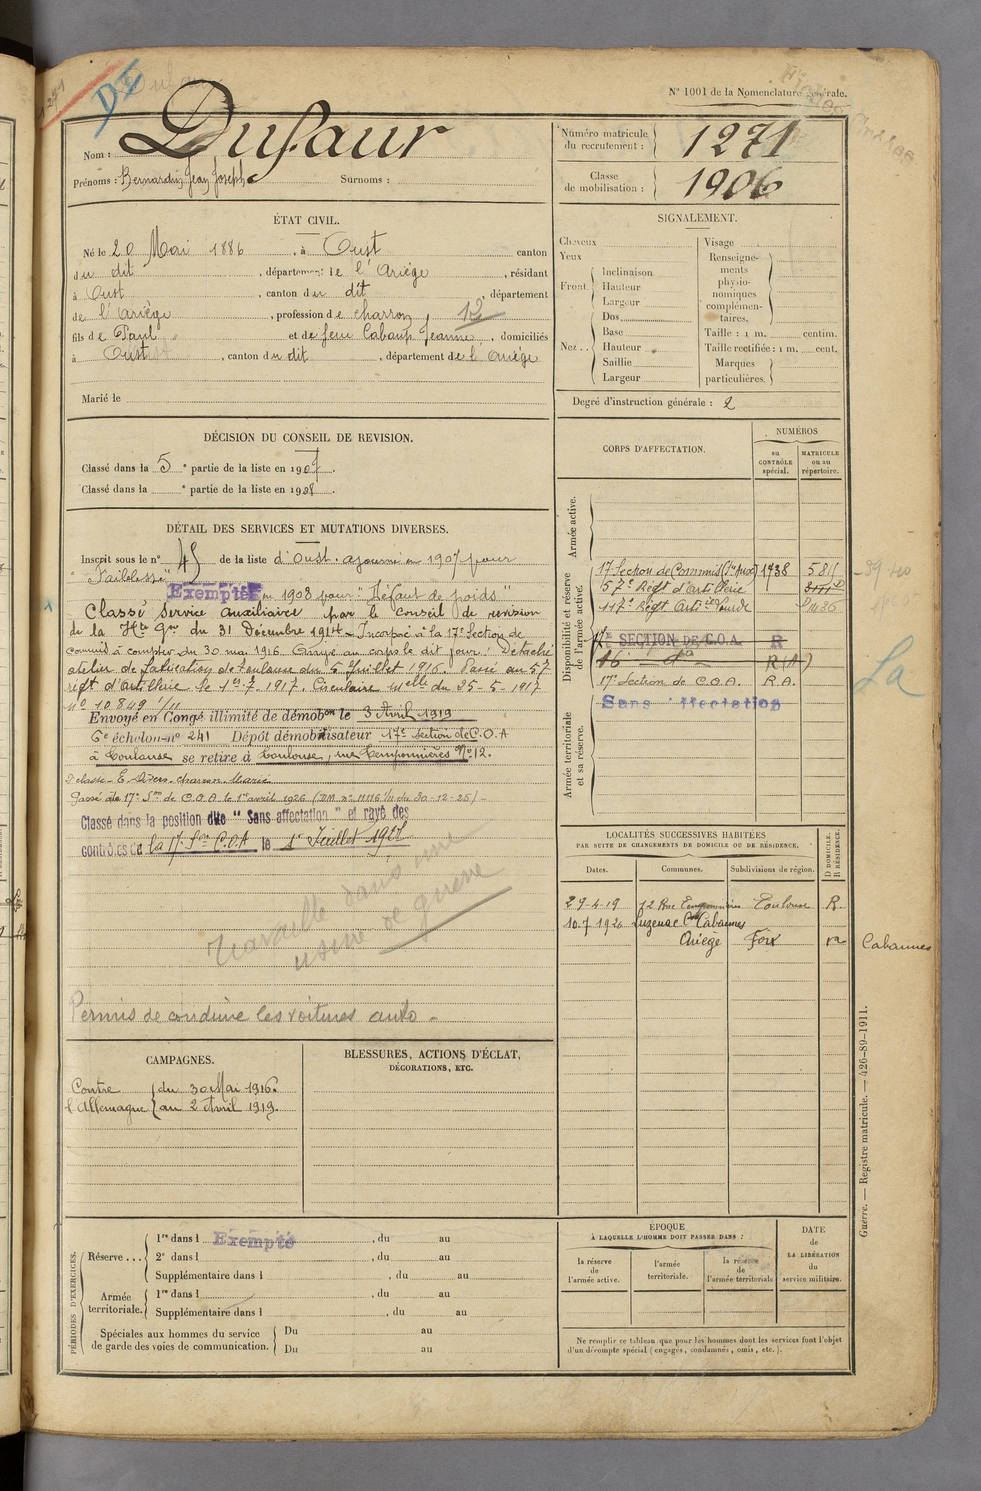 N° 1001 de la Nomenclature générale.
1271
Nom : Dufaur
Prénoms : Bernardin Jean Joseph Surnoms :
Numéro matricule du recrutement : 1271
Classe de mobilisation : 1906
ÉTAT CIVIL.
Né le 20 Mai 1886, à Oust canton
du dit, département de l'Ariège, résidant
à Oust, canton du dit, département
de l'Ariège, profession de charron, 12
fils de Paul et de feue Cabaup Jeanne, domiciliés
à Oust, canton du dit, département de l'Ariège
Marié le
SIGNALEMENT.
Cheveux
Yeux
Front. Inclinaison
Hauteur
Largeur
Nez .. Dos
Base
Hauteur
Saillie
Largeur
Visage
Renseignements physionomiques complémentaires.
Taille : 1 m. centim.
Taille rectifiée : 1 m. cent.
Marques particulières.
Degré d'instruction générale : 2
DÉCISION DU CONSEIL DE REVISION.
Classé dans la 5e partie de la liste en 1907.
Classé dans la e partie de la liste en 1908.
DÉTAIL DES SERVICES ET MUTATIONS DIVERSES.
Inscrit sous le n° 45 de la liste d'Oust. ajourné en 1907 pour
"Faiblesse"
Exempté en 1908 pour "Défaut de poids"
Classé Service Auxiliaire par le Conseil de revision
de la Hte Gne du 31 Décembre 1914. Incorporé à la 17e Section de
commis à compter du 30 mai 1916. Arrivé au corps le dit jour. Détaché
atelier de fabrication de Toulouse du 5 Juillet 1916. Passé au 57e
régt d'artillerie le 1er-7-1917. Circulaire mlle du 25-5-1917
n° 10.849 1/11
Envoyé en Congé illimité de démobon le 3 Avril 1919
6e échelon n° 241 Dépôt démobilisateur 17e section de C.O.A
à Toulouse se retire à Toulouse, rue Temponnières N° 12.
Passé à la 17e Son de C.O.A le 1er avril 1926 (DM n° 11116 1/11 du 30-12-25)
Classé dans la position dite "Sans affectation" et rayé des
contrôles de la 17e Son C.O.A le 1er Juillet 1927
Travaille dans une
usine de guerre
Permis de conduire les voitures auto -
CORPS D'AFFECTATION.
NUMÉROS
au CONTRÔLE spécial.
MATRICULE ou au répertoire.
Armée active.
Disponibilité et réserve de l'armée active.
17e Section de Commis (Sce Aux) 1738 585
57e Régt d'artillerie
117e Régt Artie Lourde
17E SECTION DE C.O.A. R
17e Section de C.O.A. R.A.
Sans affectation
Armée territoriale et sa réserve.
La
LOCALITÉS SUCCESSIVES HABITÉES
PAR SUITE DE CHANGEMENTS DE DOMICILE OU DE RÉSIDENCE.
Dates. Communes. Subdivisions de région. D DOMICILE. R RÉSIDENCE.
29-4-19 12 Rue Temponnières Toulouse R.
10.7.1920 Luzenac Con Cabannes
Ariège Foix ra
Cabannes
CAMPAGNES.
Contre l'Allemagne du 30 Mai 1916.
au 2 Avril 1919.
BLESSURES, ACTIONS D'ÉCLAT,
DÉCORATIONS, ETC.
PÉRIODES D'EXERCICES.
Réserve ... 1re dans l Exempté, du au
2e dans l, du au
Supplémentaire dans l, du au
Armée territoriale. 1re dans l, du au
Supplémentaire dans l, du au
Spéciales aux hommes du service de garde des voies de communication. Du au
Du au
ÉPOQUE
À LAQUELLE L'HOMME DOIT PASSER DANS :
la réserve de l'armée active.
l'armée territoriale.
la réserve de l'armée territoriale
DATE de LA LIBÉRATION du service militaire.
Ne remplir ce tableau que pour les hommes dont les services font l'objet
d'un décompte spécial (engagés, condamnés, omis, etc.).
Guerre. — Registre matricule. — 426-89-1911.